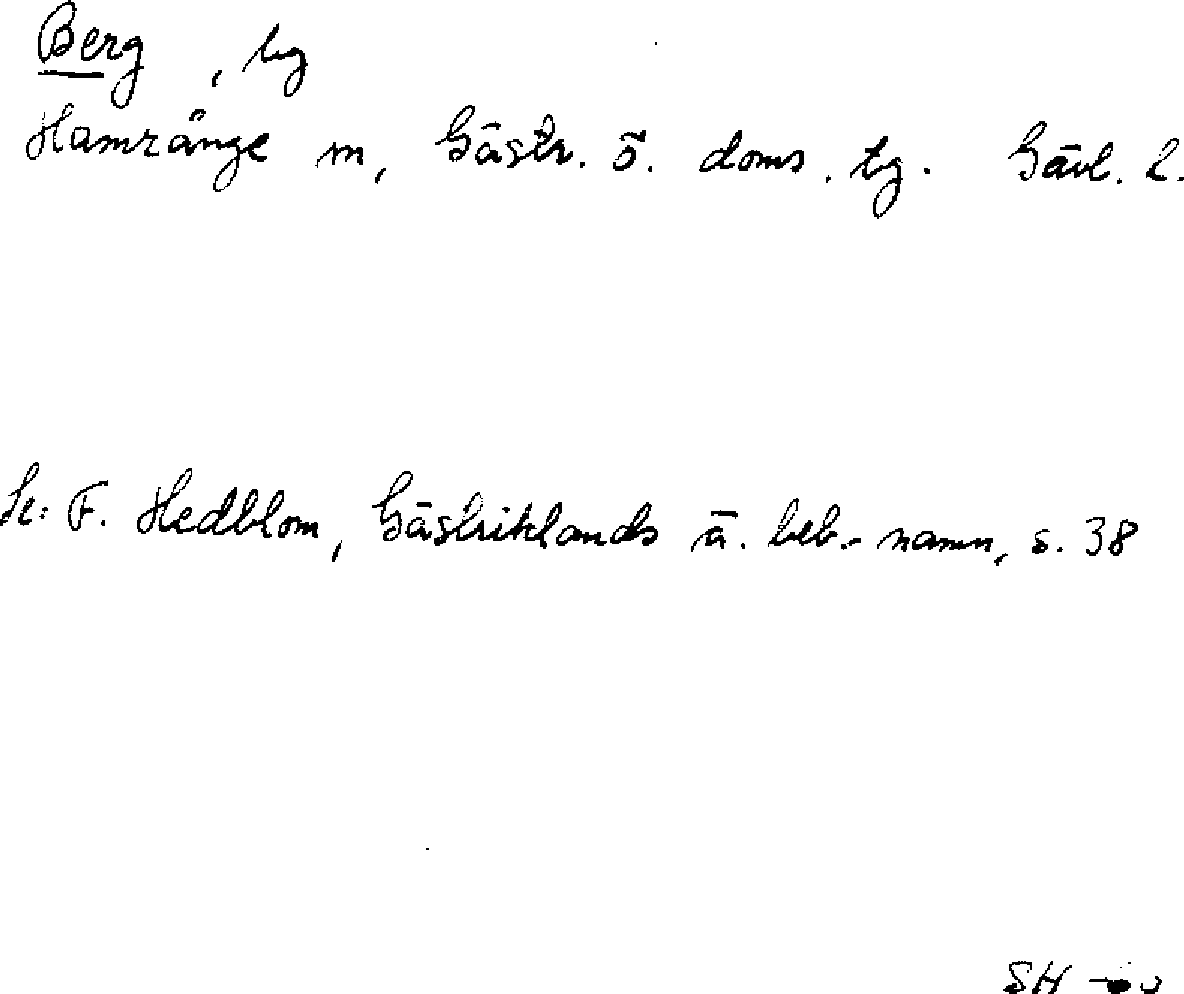 Berg, by
Hamränge sn, Gästr. ö. doms. tg. Gävl. l.
Se: F. Hedblom, Gästriklands ä. beb.-namn, s. 38
SH